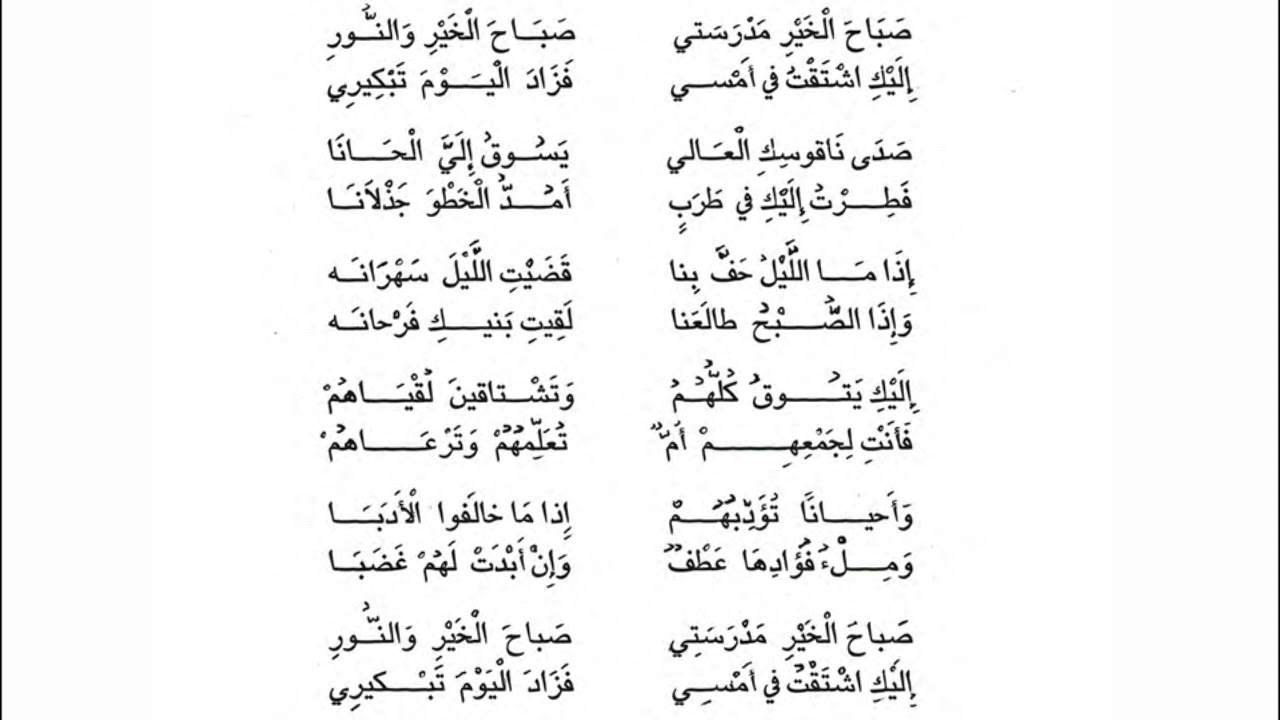 صَبَاحَ الْخَيْرِ مَدْرَسَتي صَبَـاحَ الْخَيْرِ وَالنُّـورِ
إِلَيْكِ اشْتَقْتُ في أَمْسـي فَزَادَ الْيَـوْمَ تَبْكِيرِي
صَدَى نَاقوسِكِ الْعَـالي يَسُـوقُ إِلَيَّ الْحَـانَا
فَطِـرْتُ إِلَيْكِ في طَرَبٍ أَمُـدُّ الْخَطْوَ جَذْلَانَـا
إِذَا مَـا اللَّيْلُ حَفَّ بِنا قَضَيْتِ اللَّيْلَ سَهْرَانَـه
وَإِذَا الصُّـبْحُ طالَعَنا لَقِيتِ بَنيـكِ فَرْحانَـه
إِلَيْكِ يَتُـوقُ كُلُّهُـمُ وَتَشْـتاقينَ لُقْيَـاهُمْ
فَأَنْتِ لِجَمْعِهِـمْ أُمٌّ تُعَلِّمُهُمْ وَتَرْعَـاهُمْ
وَأَحيـانًا تُؤَدِّبُهُـمْ إِذا مَا خالَفُوا الْأَدَبَـا
وَمِـلْءُ فُؤَادِهَا عَطْفٌ وَإِنْ أَبْدَتْ لَهُمْ غَضَبَـا
صَباحَ الْخَيْرِ مَدْرَسَتِي صَباحَ الْخَيْرِ وَالنُّـورِ
إِلَيْكِ اشْتَقْتُ في أَمْسِـي فَزَادَ الْيَوْمَ تَبْـكيرِي